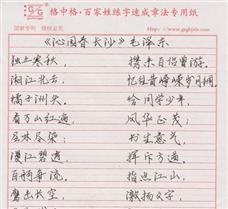 格中格·百家姓练字速成章法专用纸
国家专利 侵权必究
《沁园春长沙》毛泽东
独立寒秋，
湘江北去，
橘子洲头。
看万山红遍，
层林尽染，
漫江碧透，
百舸争流。
鹰击长空，
携来百侣曾游，
忆往昔峥嵘岁月稠。
恰同学少年，
风华正茂；
书生意气，
挥斥方遒。
指点江山，
激扬文字，